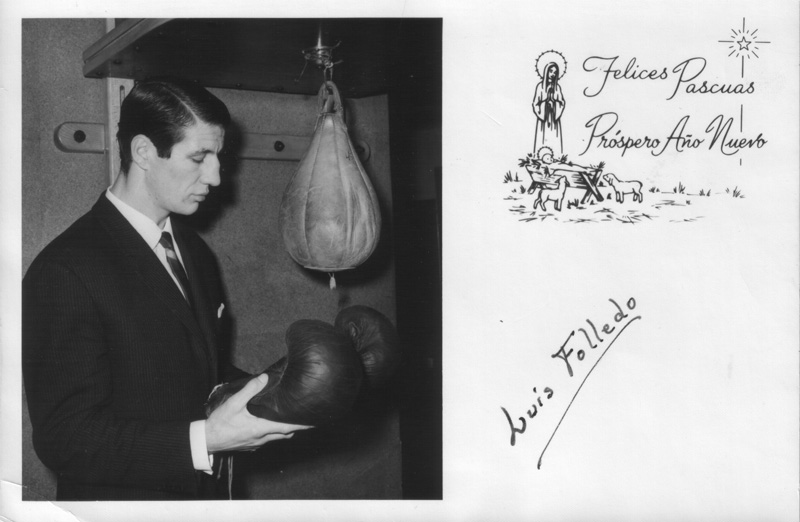 Felices Pascuas
Próspero Año Nuevo
Luis Folledo